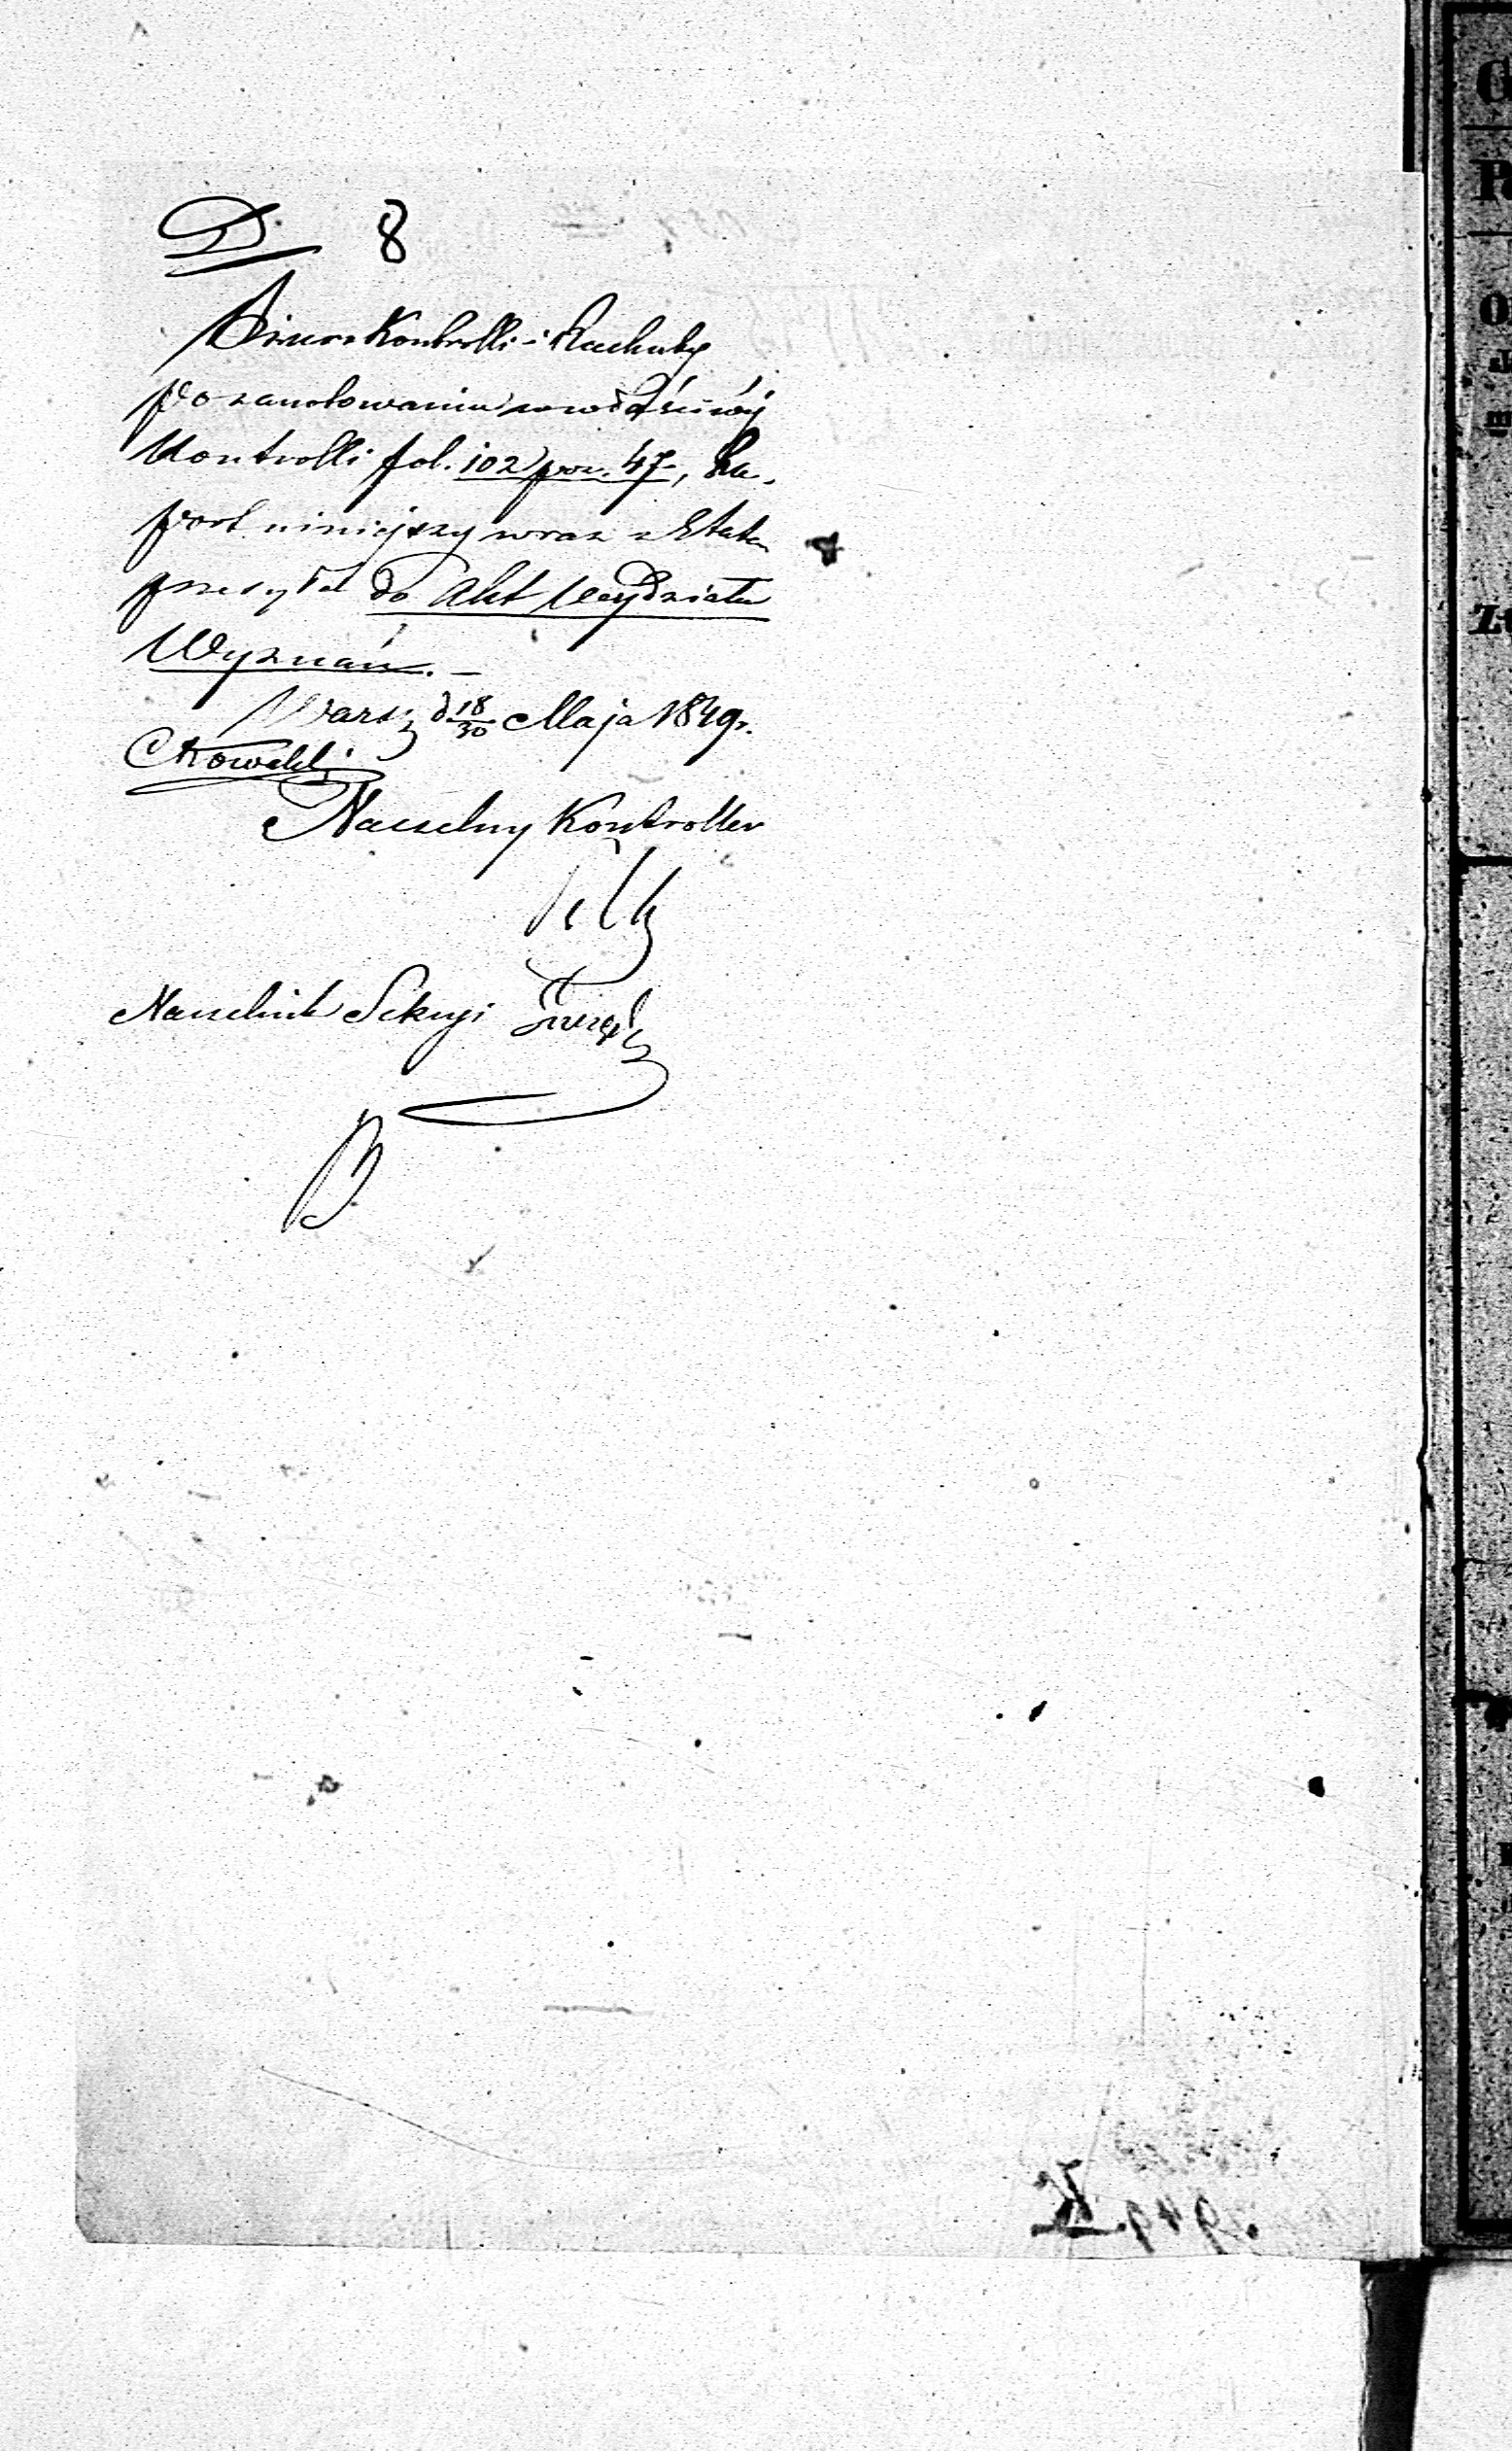 D. 8
Biuro Kontrolli i Rachuby
po zanotowaniu w właściwéj
Kontrolli fol. 102 poz. 47, Ra-
port niniejszy wraz z Etatem
przesyła do Akt Wydziału
Wyznań. —
Warsz d 18/30 Maja 1849 r.
Kowalski
Naczelny Kontroller
Naczelnik Sekcyi
B.